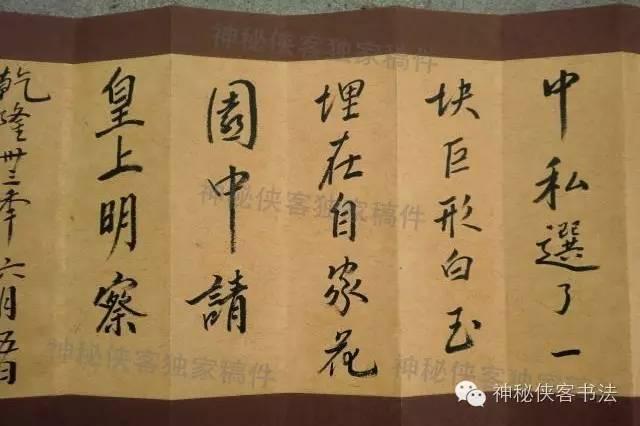 中私選了一
块巨形白玉
埋在自家花
園中請
皇上明察
乾隆卅三年六月五日
神秘侠客独家稿件
神秘侠客独家稿件
神秘侠客独家稿件
神秘侠客独家稿件
神秘侠客书法